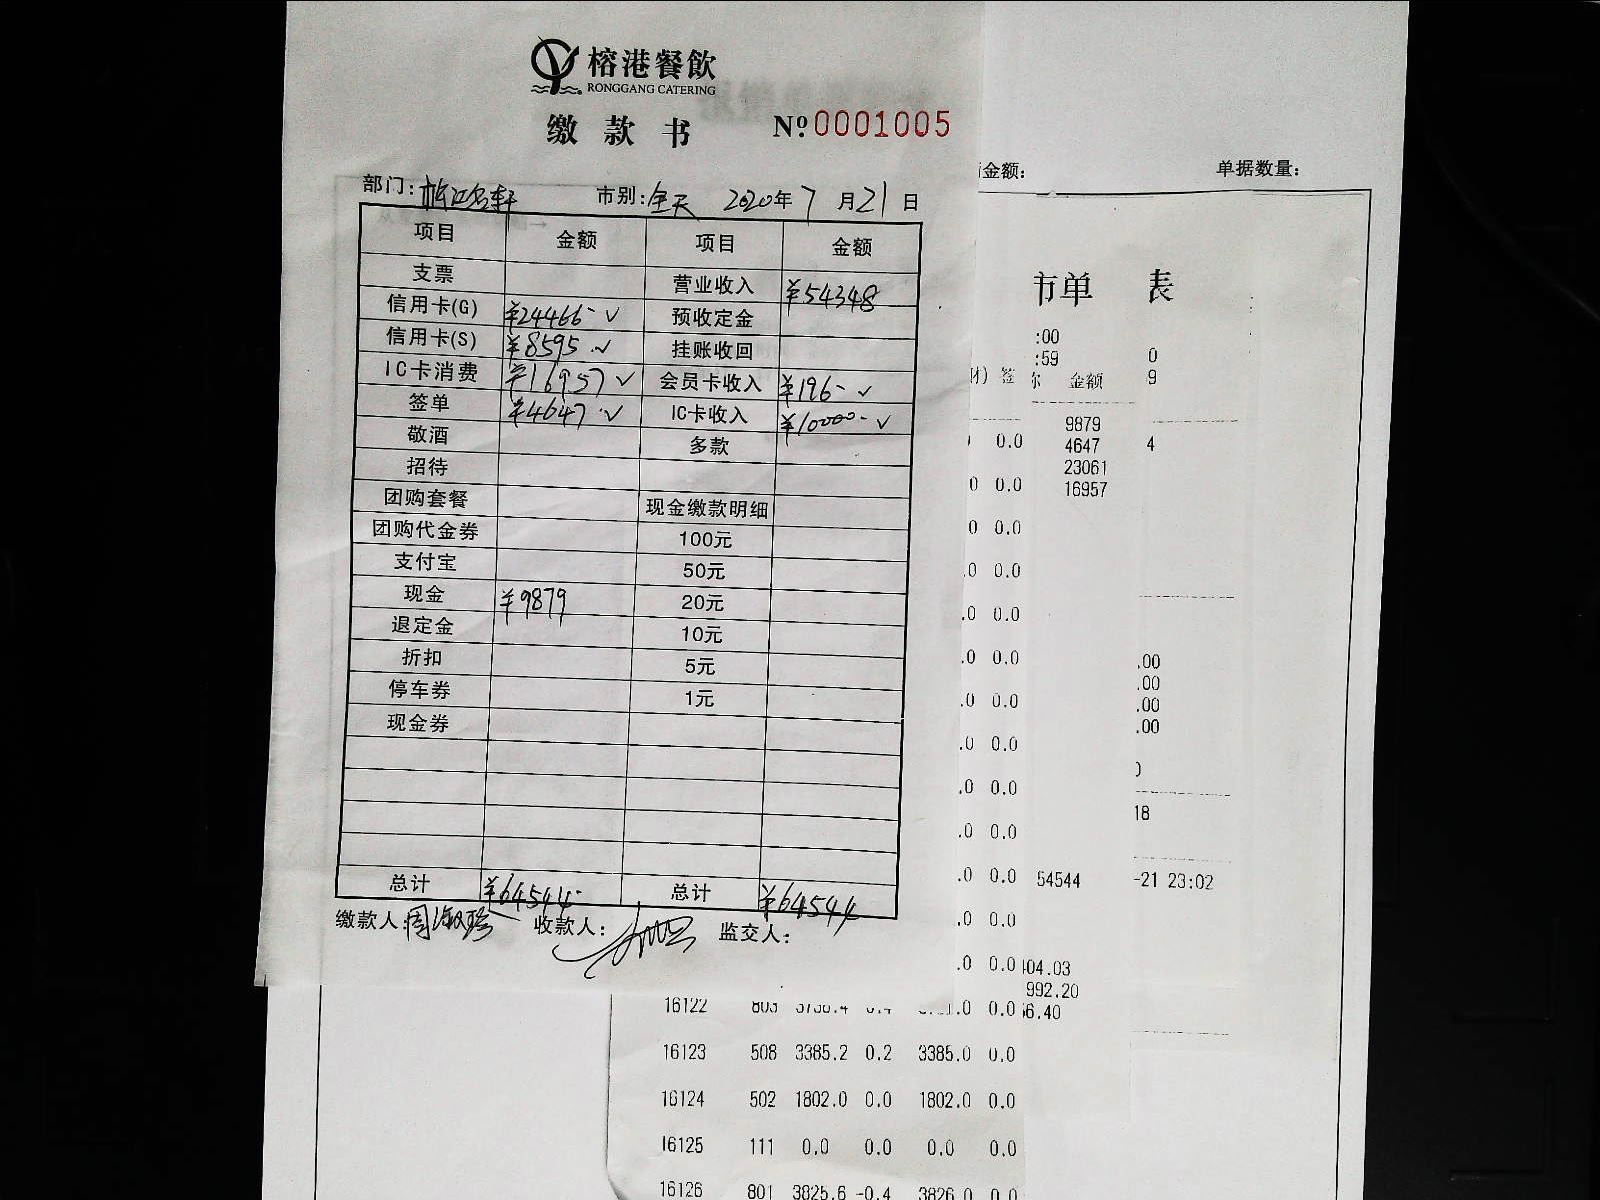 榕港餐飲
RONGGANG CATERING
缴款书 №0001005
金额: 单据数量:
部门: 市别:全天 2020年7月21日
项目 金额 项目 金额
支票 营业收入 ¥54348
信用卡(G) ¥24466-✓ 预收定金
信用卡(S) ¥8595.✓ 挂账收回
IC卡消费 ¥16957✓ 会员卡收入 ¥196-✓
签单 ¥4647.✓ IC卡收入 ¥10000-✓
敬酒 多款
招待
团购套餐 现金缴款明细
团购代金券 100元
支付宝 50元
现金 ¥9879 20元
退定金 10元
折扣 5元
停车券 1元
现金券
总计 ¥64544- 总计 ¥64544
缴款人: 收款人: 监交人:
市单 表
:00
:59 0
签 金额 9
9879
0.0 4647 4
23061
0 0.0 16957
0 0.0
.0 0.0
.0 0.0
.0 0.0 .00
.00
.0 0.0 .00
.00
.0 0.0
.0 0.0
18
.0 0.0
.0 0.0 54544 -21 23:02
.0 0.0
.0 0.0 04.03
992.20
16122 803 .0 0.0 6.40
16123 508 3385.2 0.2 3385.0 0.0
16124 502 1802.0 0.0 1802.0 0.0
16125 111 0.0 0.0 0.0 0.0
16126 801 3825.6 -0.4 3826.0 0.0